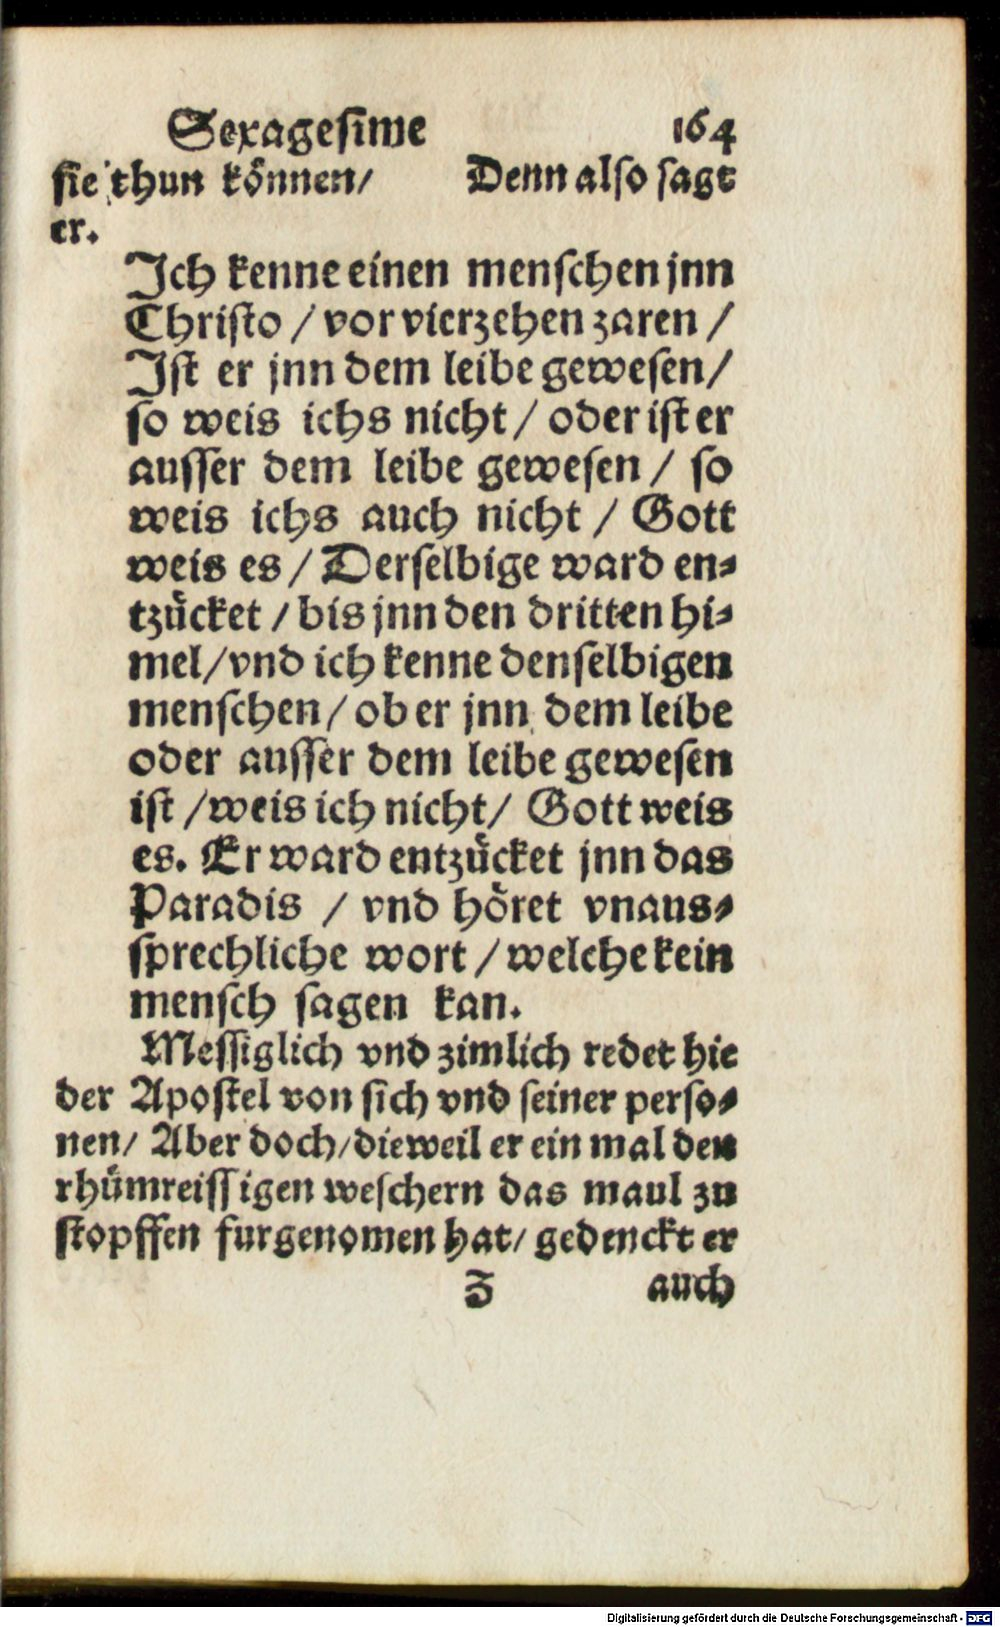 Sexagesime 164
sie thun können/ Denn also sagt
er.
Ich kenne einen menschen jnn
Christo / vor vierzehen zaren /
Ist er jnn dem leibe gewesen/
so weis ichs nicht / oder ist er
ausser dem leibe gewesen / so
weis ichs auch nicht / Gott
weis es / Derselbige ward en⸗
tzücket / bis jnn den dritten hi⸗
mel/vnd ich kenne denselbigen
menschen / ob er jnn dem leibe
oder ausser dem leibe gewesen
ist /weis ich nicht/ Gott weis
es. Er ward entzücket jnn das
Paradis / vnd höret vnaus⸗
sprechliche wort / welche kein
mensch sagen kan.
Messiglich vnd zimlich redet hie
der Apostel von sich vnd seiner perso⸗
nen/ Aber doch/dieweil er ein mal den
rhümreissigen weschern das maul zu
stopffen furgenomen hat/ gedenckt er
Z auch
Digitalisierung gefördert durch die Deutsche Forschungsgemeinschaft - DFG